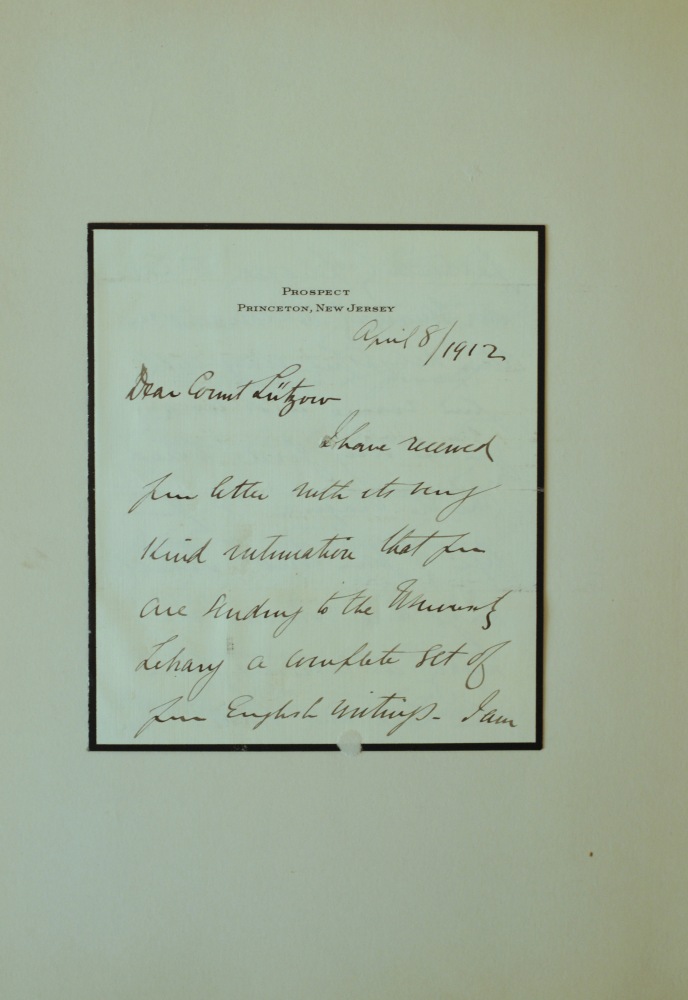 PROSPECT
PRINCETON, NEW JERSEY
April 8/1912
Dear Count Lützow
I have received
your letter with its very
kind intimation that you
are sending to the University
Library a complete set of
your English writings - I am